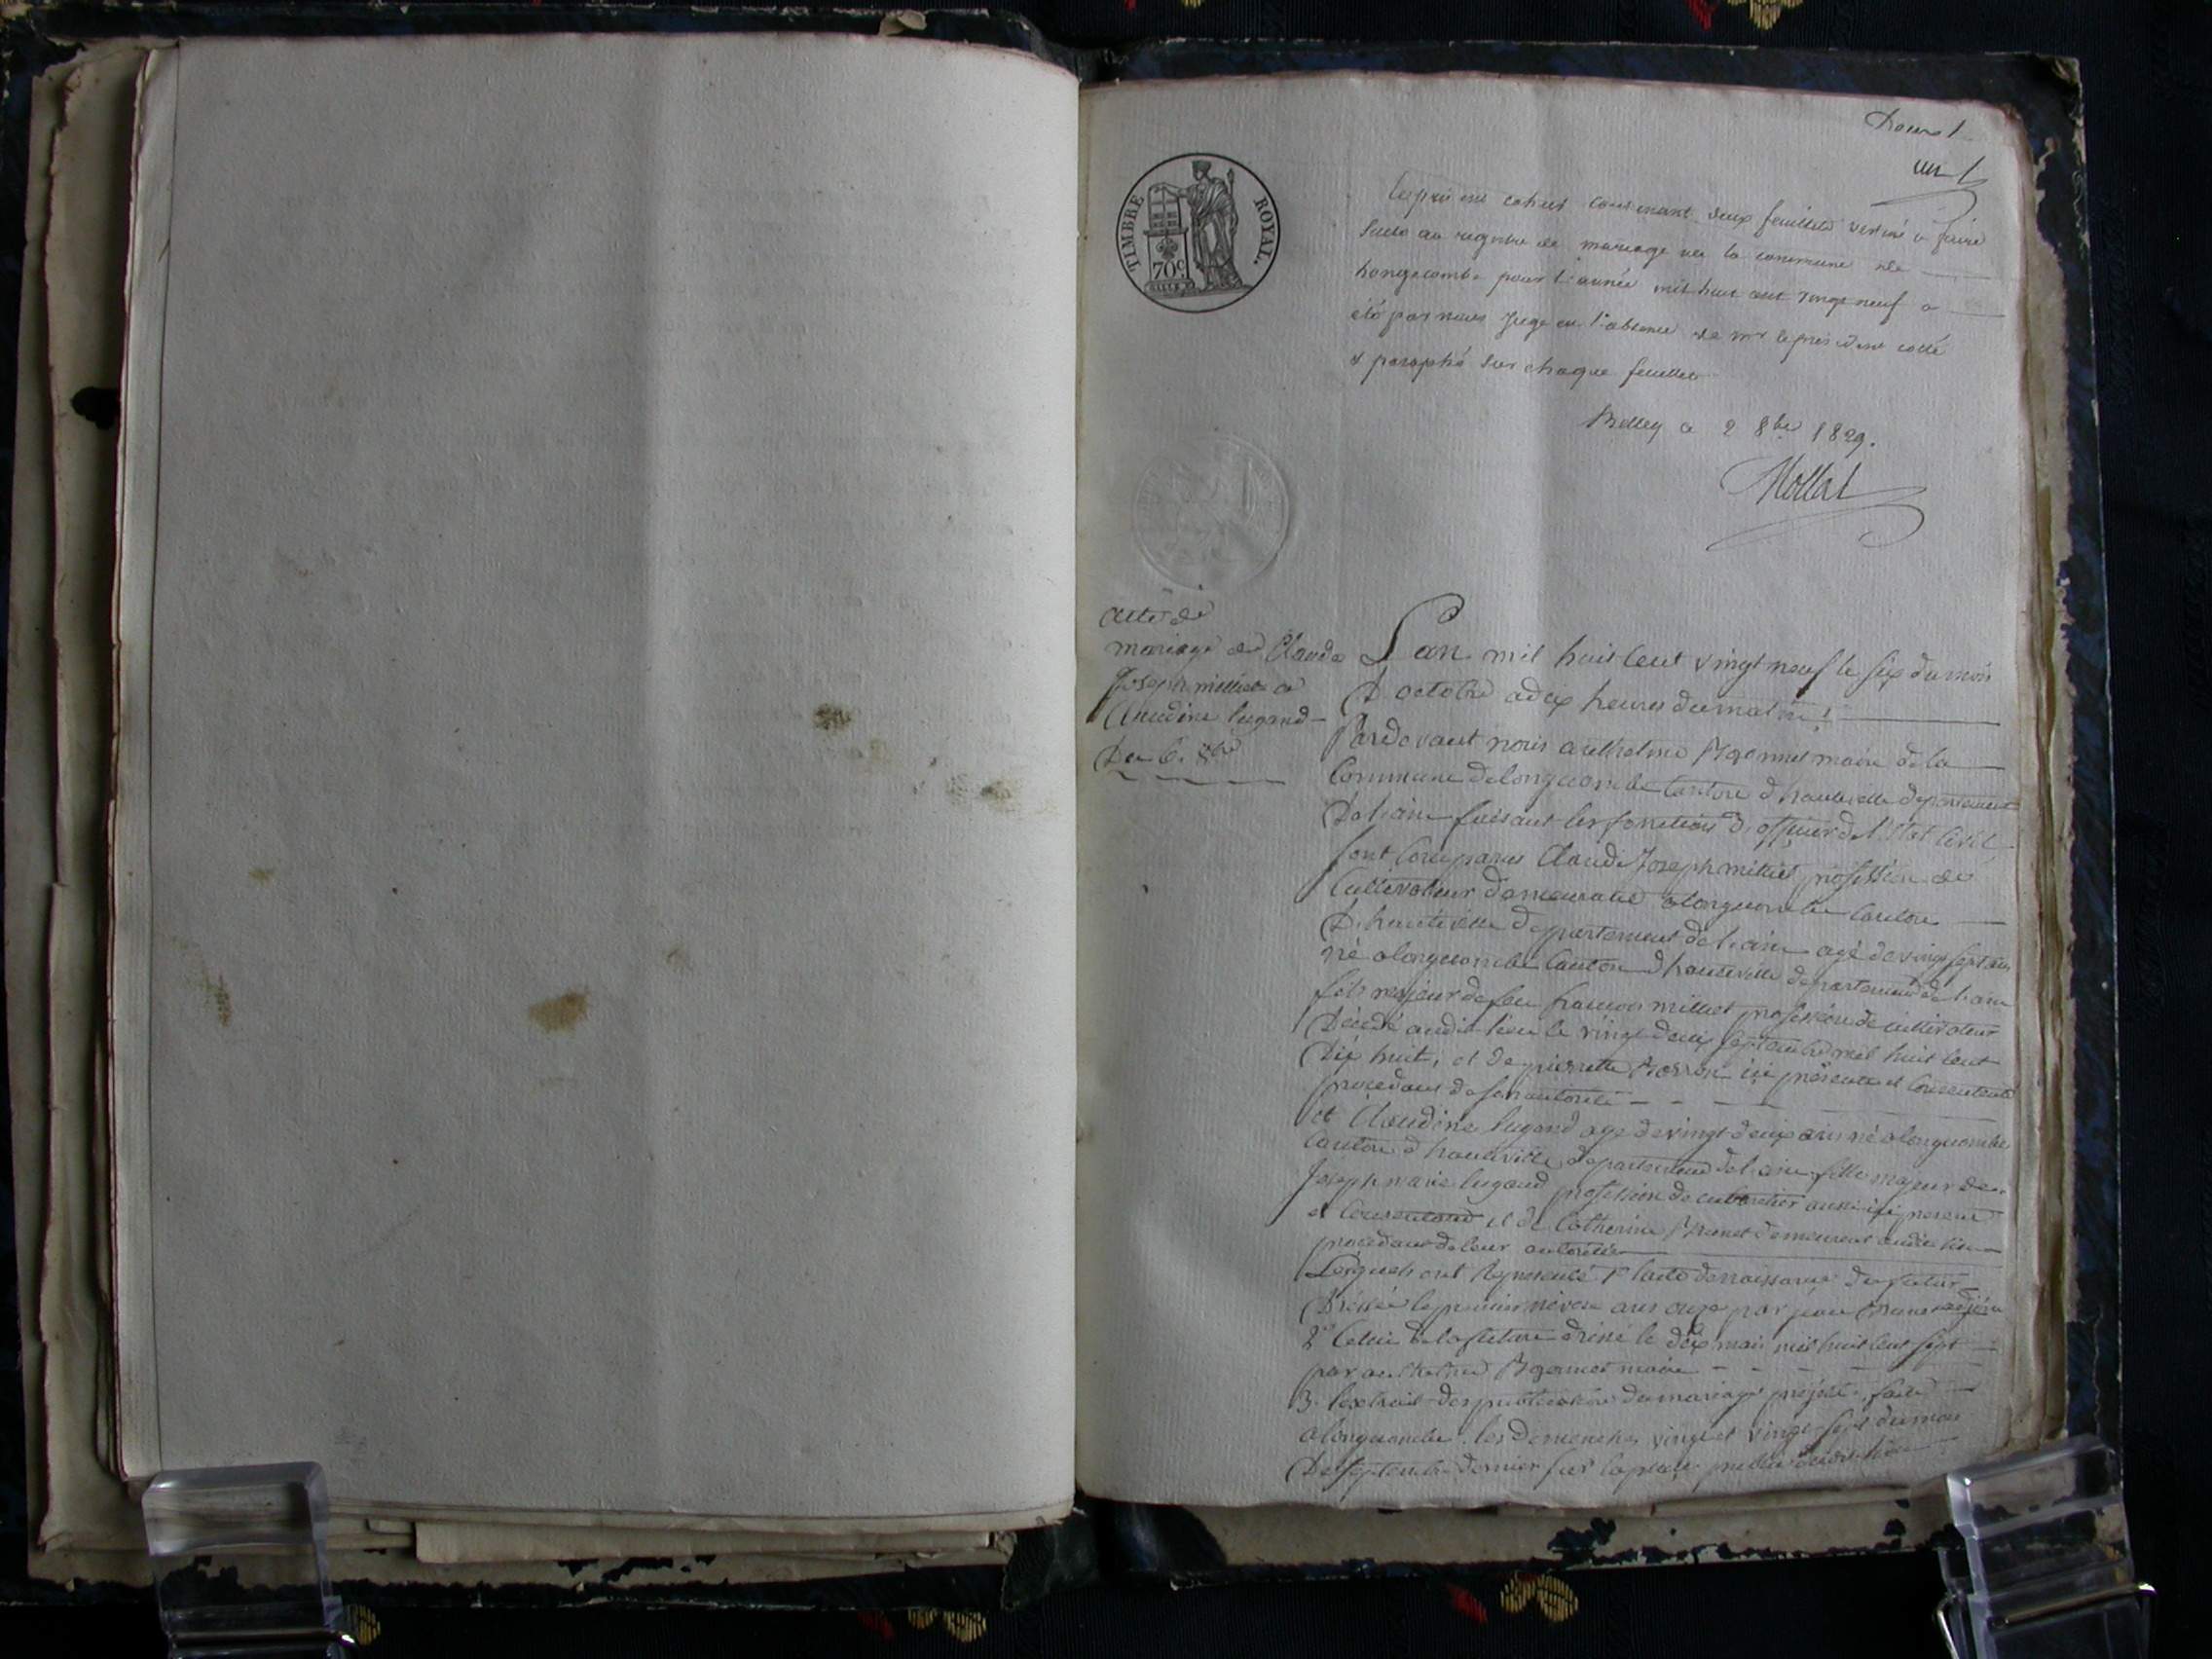 un
TIMBRE ROYAL.
70c
le présent cahier contenant deux feuillets destiné à faire
suite au registre de mariage de la commune de
Longecombe pour l'année mil huit cent vingt neuf a
été par nous Juge en l'absence de mr le président coté
& paraphé sur chaque feuillet
Belley ce 2 8bre 1829.
Mollat
acte de
mariage de Claude
Joseph milliet et
Claudine lugand
Du 6. 8bre
L'an mil huit cent vingt neuf le six du mois
D'octobre a dix heures du matin
Pardevant nous anthelme maire de la
Commune de longecombe Canton d'hauteville departement
De l'ain faisant les fonctions d'officier de l'Etat Civil
sont Comparus Claude Joseph milliet profession de
Cultivateur demeurant a longecombe Canton
D'hauteville departement de l'ain agé de vingt sept ans
né a longecombe Canton d'hauteville departement de l'ain
fils majeur de feu francois milliet profession de cultivateur
Décédé audit lieu le vingt deux septembre mil huit cent
Dix huit, et de pierrette ici présente et Consentente
procedant de son autorité
et Claudine lugand age de vingt deux ans né a longecombe
Canton d'hauteville departement de l'ain fille majeur de
Joseph marie lugand profession de aussi ici present
et Consentant et de Catherine demeurent audit lieu
procedant de leur autorité
Lesquels ont Representé 1º l'acte de naissance du futur
Dressé le premier nivose ans onze par jean adjoin
2º Celui de la future dressé le dix mai mil huit cent sept
par anthelme maire
3. l'extrait des publications du mariage projeté faite
a longecombe les Dimenches vingt et vingt sept du mois
De septembre dernier sur la place publique dudit lieu